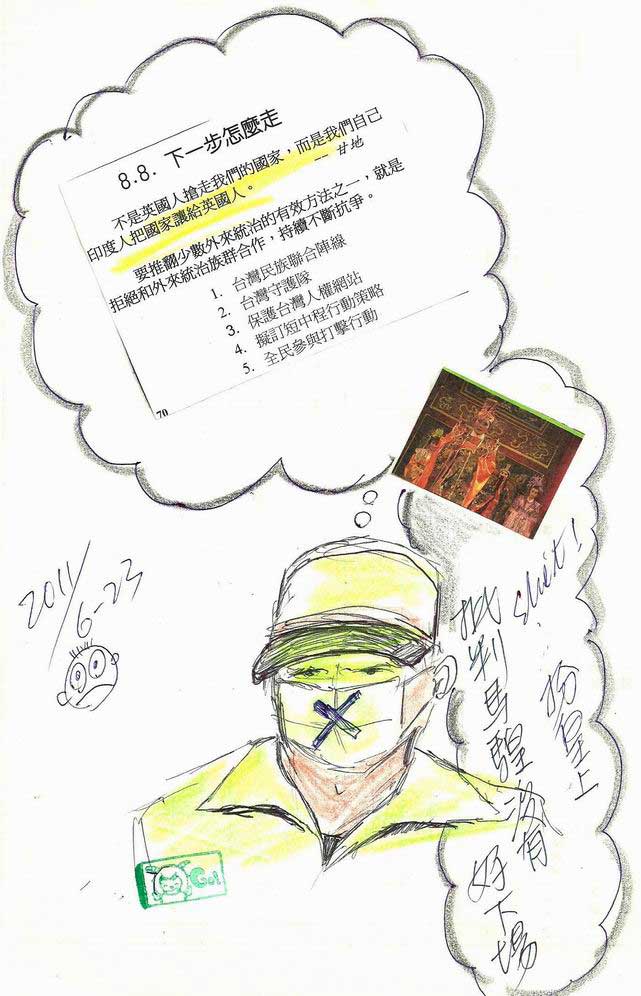 8.8. 下一步怎麼走
不是英國人搶走我們的國家，而是我們自己
印度人把國家讓給英國人。 -- 甘地
要推翻少數外來統治的有效方法之一，就是
拒絕和外來統治族群合作，持續不斷抗爭。
1. 台灣民族聯合陣線
2. 台灣守護隊
3. 保護台灣人權網站
4. 擬訂短中程行動策略
5. 全民參與打擊行動
70
2011/6-23
shit!
扮皇上
批判馬騜沒有好下場
Go!